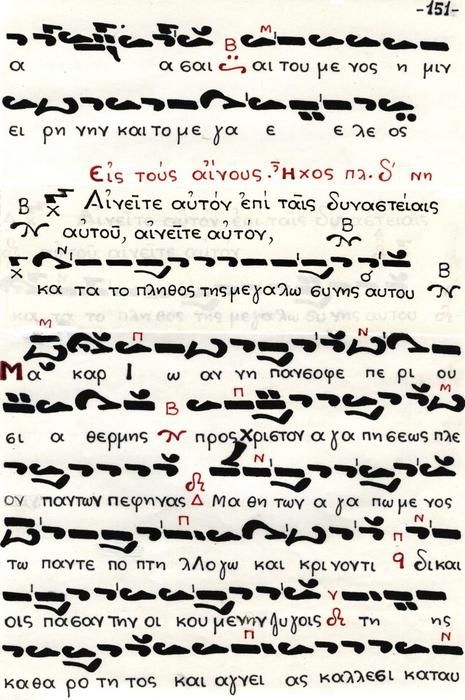 -151-
α α σαι αι του με νος η μιν
ει ρη νην και το με γα ε ε λε ος
Εἰς τούς αἴνους. Ἦχος πλ. δ' νη
Αἰνεῖτε αὐτόν ἐπί ταῖς δυναστείαις
αὐτοῦ, αἰνεῖτε αὐτόν,
κα τα το πληθος της με γα λω συ νης αυτου
Μα καρ ι ω αν νη πανσοφε πε ρι ου
σι α θερμης προς χριστον α γα πη σεως πλε
ον παντων πεφηνας Μα θη των α γα πω με νος
τω παντε πο πτη λλο γω και κρι νοντι δικαι
οις πασαν την οι κου μενην ζυγοις τη ης
καθα ρο τη τος και αγνει ας καλλεσι καταυ